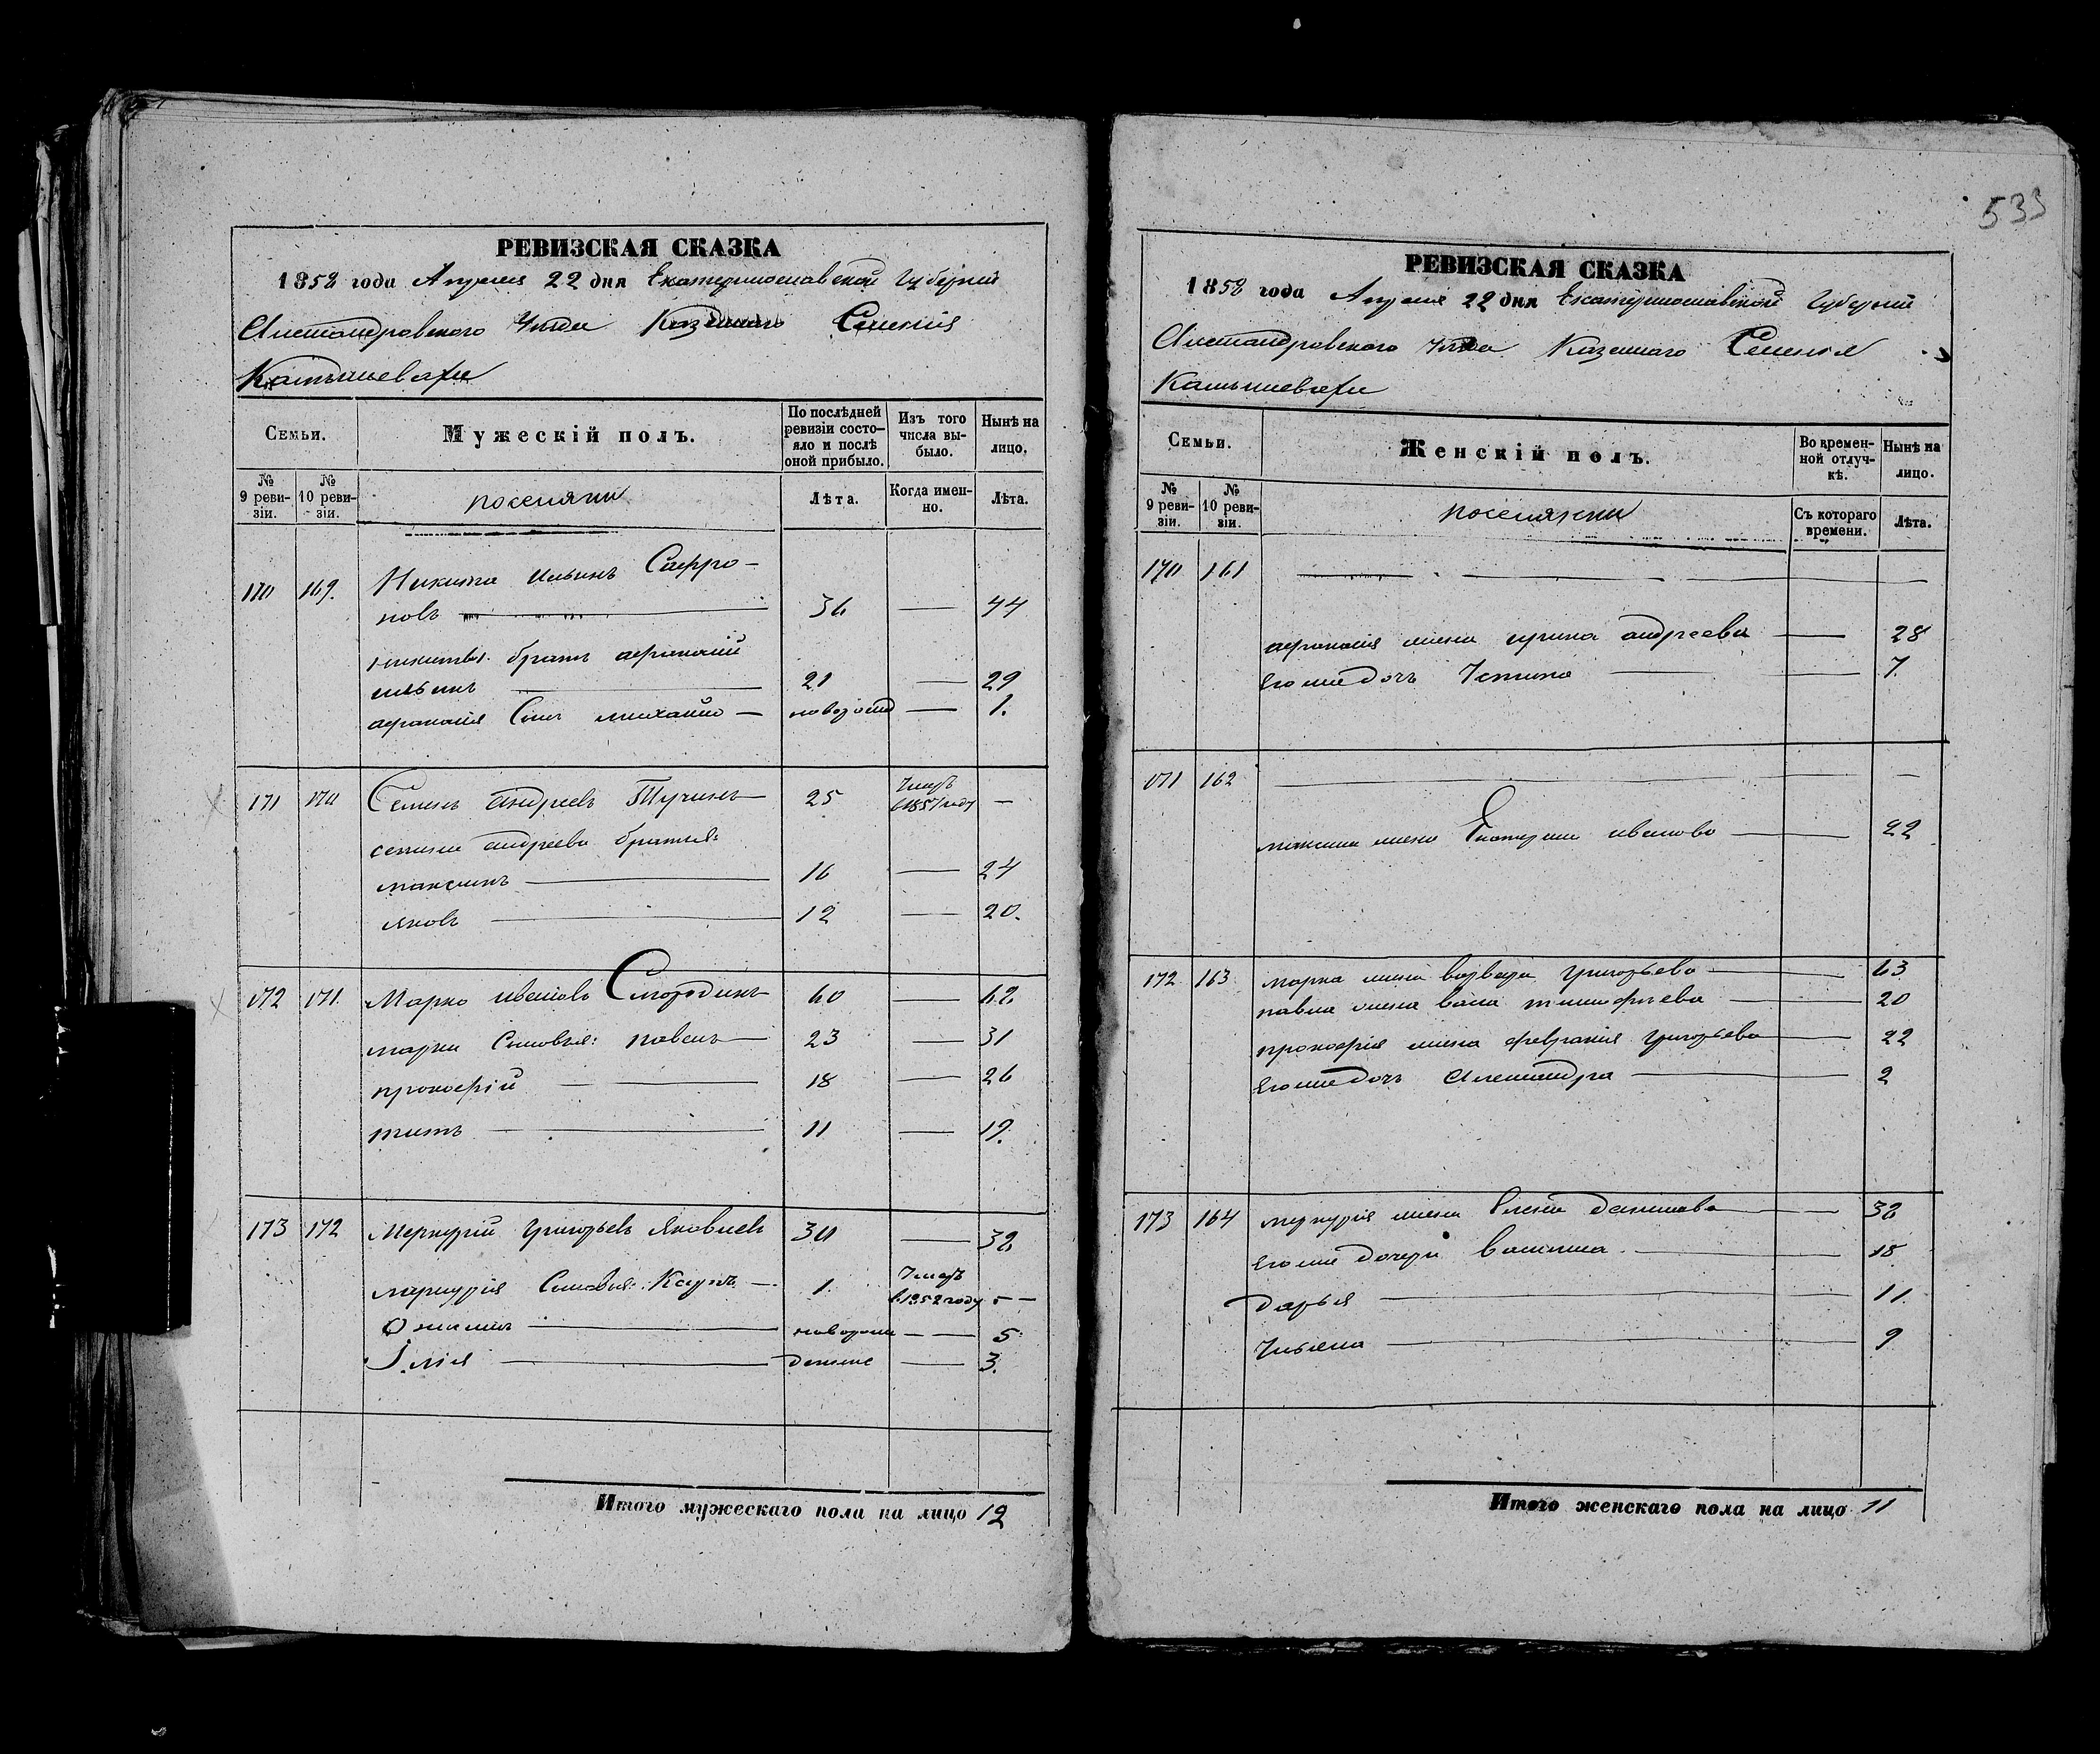 533
РЕВИЗСКАЯ СКАЗКА
1858 года Апреля 22 дня Екатеринославской Губерніи
Александровского Уезда Казенного Селенія
Камышевахи
Семьи.
Мужескій полъ.
По послѣдней ревизіи состояло и послѣ оной прибыло.
Изъ того числа выбыло.
Нынѣ на лицо.
№ 9 ревизіи.
№ 10 ревизіи.
поселяни
Лѣта.
Когда именно.
Лѣта.
170 169. Никита Ильинъ Сафро-
новъ 36 — 44
никиты братъ афанасій
ильинъ 21 — 29
афанасія Сынъ михайло — новорожд — 1.
171 170 Семенъ Андреевъ Тучинъ 25 Умеръ в 1857 году —
семена андреева братья:
максимъ 16 — 24
яковъ 12 — 20.
172 171. Марко ивановъ Смородинъ 60 — 68
марки Сыновья: павелъ 23 — 31
прокофій 18 — 26
титъ 11 — 19.
173 172 Меркурій Григорьевъ Яковлевъ 30 — 38
меркурія Сыновья: Карпъ — 1. Умеръ в 1852 году —
новорожд — 5
Илія — тоже — 3.
Итого мужескаго пола на лицо 12
РЕВИЗСКАЯ СКАЗКА
1858 года Апреля 22 дня Екатеринославской Губерніи
Александровского Уезда Казенного Селенія
Камышевахи
Семьи.
Женскій полъ.
Во временной отлучкѣ.
Нынѣ на лицо.
№ 9 ревизіи.
№ 10 ревизіи.
поселянки
Съ котораго времени.
Лѣта.
170 161 — — —
афанасія жена ирина андреева — 28
Его же дочь Устина — 7.
171 162 — —
максима жена Екатерина иванова — 22
172 163 марка жена варвара Григорьева — 63
павла жена васа тимофеева — 20
прокофія жена февронія Григорьева — 22
Его же дочь Александра — 2
173 164 меркурія жена Елена данилова — 38
Его же дочери васииса — 18
дарья — 11.
Ульяна — 9
Итого женскаго пола на лицо 11